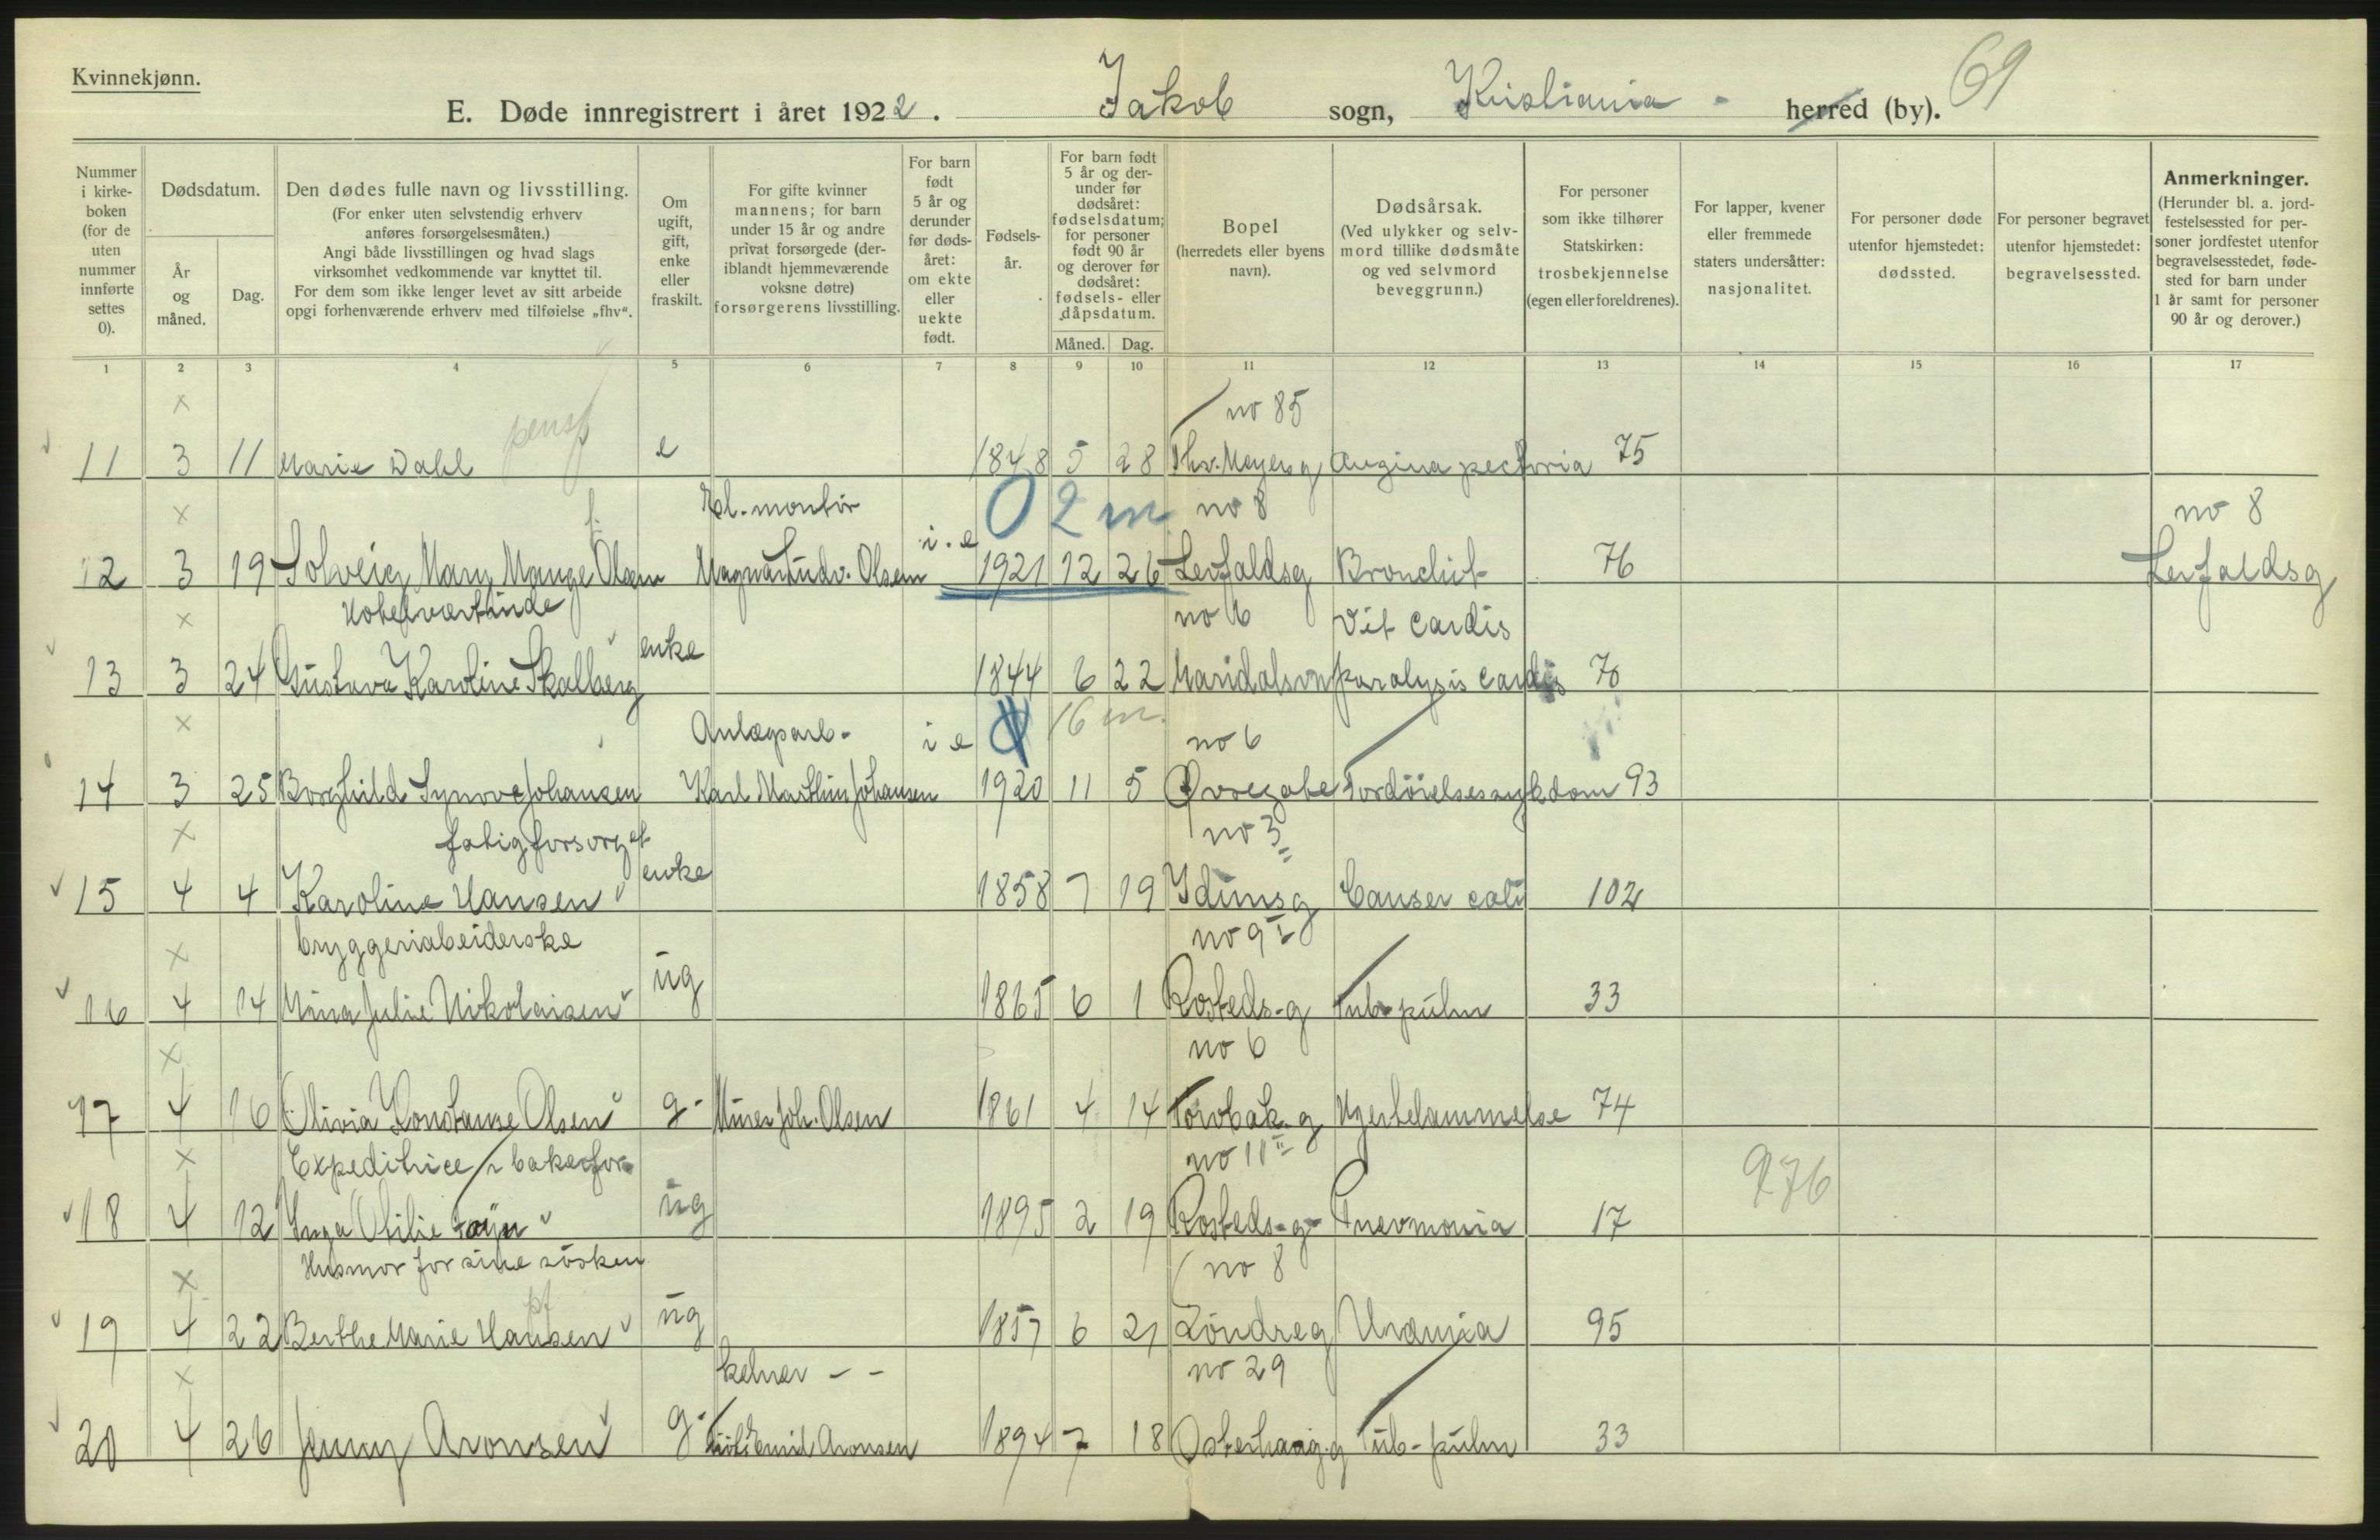 Kvinnekjønn.
E. Døde innregistrert i året 1922. Jakob sogn, Kristiania - herred (by). 69
Nummer i kirkeboken (for de uten nummer innførte settes 0).
Dødsdatum.
År og måned.
Dag.
Den dødes fulle navn og livsstilling.
(For enker uten selvstendig erhverv anføres forsørgelsesmåten.)
Angi både livsstillingen og hvad slags virksomhet vedkommende var knyttet til.
For dem som ikke lenger levet av sitt arbeide opgi forhenværende erhverv med tilføielse „fhv“.
Om ugift, gift, enke eller fraskilt.
For gifte kvinner mannens; for barn under 15 år og andre privat forsørgede (deriblandt hjemmeværende voksne døtre) forsørgerens livsstilling.
For barn født 5 år og derunder før dødsåret: om ekte eller uekte født.
Fødselsår.
For barn født 5 år og derunder før dødsåret: fødselsdatum; for personer født 90 år og derover før dødsåret: fødsels- eller dåpsdatum.
Måned. Dag.
Bopel (herredets eller byens navn).
Dødsårsak.
(Ved ulykker og selvmord tillike dødsmåte og ved selvmord beveggrunn.)
For personer som ikke tilhører Statskirken: trosbekjennelse (egen eller foreldrenes).
For lapper, kvener eller fremmede staters undersåtter: nasjonalitet.
For personer døde utenfor hjemstedet: dødssted.
For personer begravet utenfor hjemstedet: begravelsessted.
Anmerkninger.
(Herunder bl. a. jordfestelsessted for personer jordfestet utenfor begravelsesstedet, fødested for barn under 1 år samt for personer 90 år og derover.)
1 2 3 4 5 6 7 8 9 10 11 12 13 14 15 16 17
x no 85
11 3 11 Marie Dahl e 1848 5 28 Thv. Meyersg Angina pectoria 75
x El. montør 0 2 m no 8 no 8
12 3 19 Solveig Mary Mauge Olsen Magnar Ludv. Olsen i.e 1921 12 26 Levfaldsg Bronchit 76 Levfaldsg
x Hotelværtinde no 6 Vit cardis
13 3 24 Gustava Karoline Skalberg enke 1844 6 22 Maridalsvn paralysis cardis 78
x Anlægsarb- i e 16 m. no 6
14 3 25 Borghild Synove Johansen Karl Marthin Johansen 1920 11 5 Øvregate Fordöielsessykdom 93
x fatigforsorget no 3
15 4 4 Karoline Hansen enke 1858 7 19 Idunsg Cancer coli 102
x bryggeriabeiderske no 9
16 4 14 Mina Julie Nikolaisen ug 1865 6 1 Rosteds-g Tub-pulm 33
x no 6
17 4 16 Olivia Konstanse Olsen g- Murer Joh. Olsen 1861 4 14 Torvbak.g Hjertelammelse 74
x Expeditrice bakerfor no 11 976
18 4 12 Inga Otilie ug 1895 2 19 Rosteds-g- Pnevmonia 17
x Husmor for sine sösken no 8
19 4 22 Berthe Marie Hansen ug 1857 6 21 Söndreg Uræmia 95
x kelner - - no 29
20 4 26 Jenny Aronsen g- Emil Aronsen 1894 7 18 Osterhaug.g Tub-pulm 33